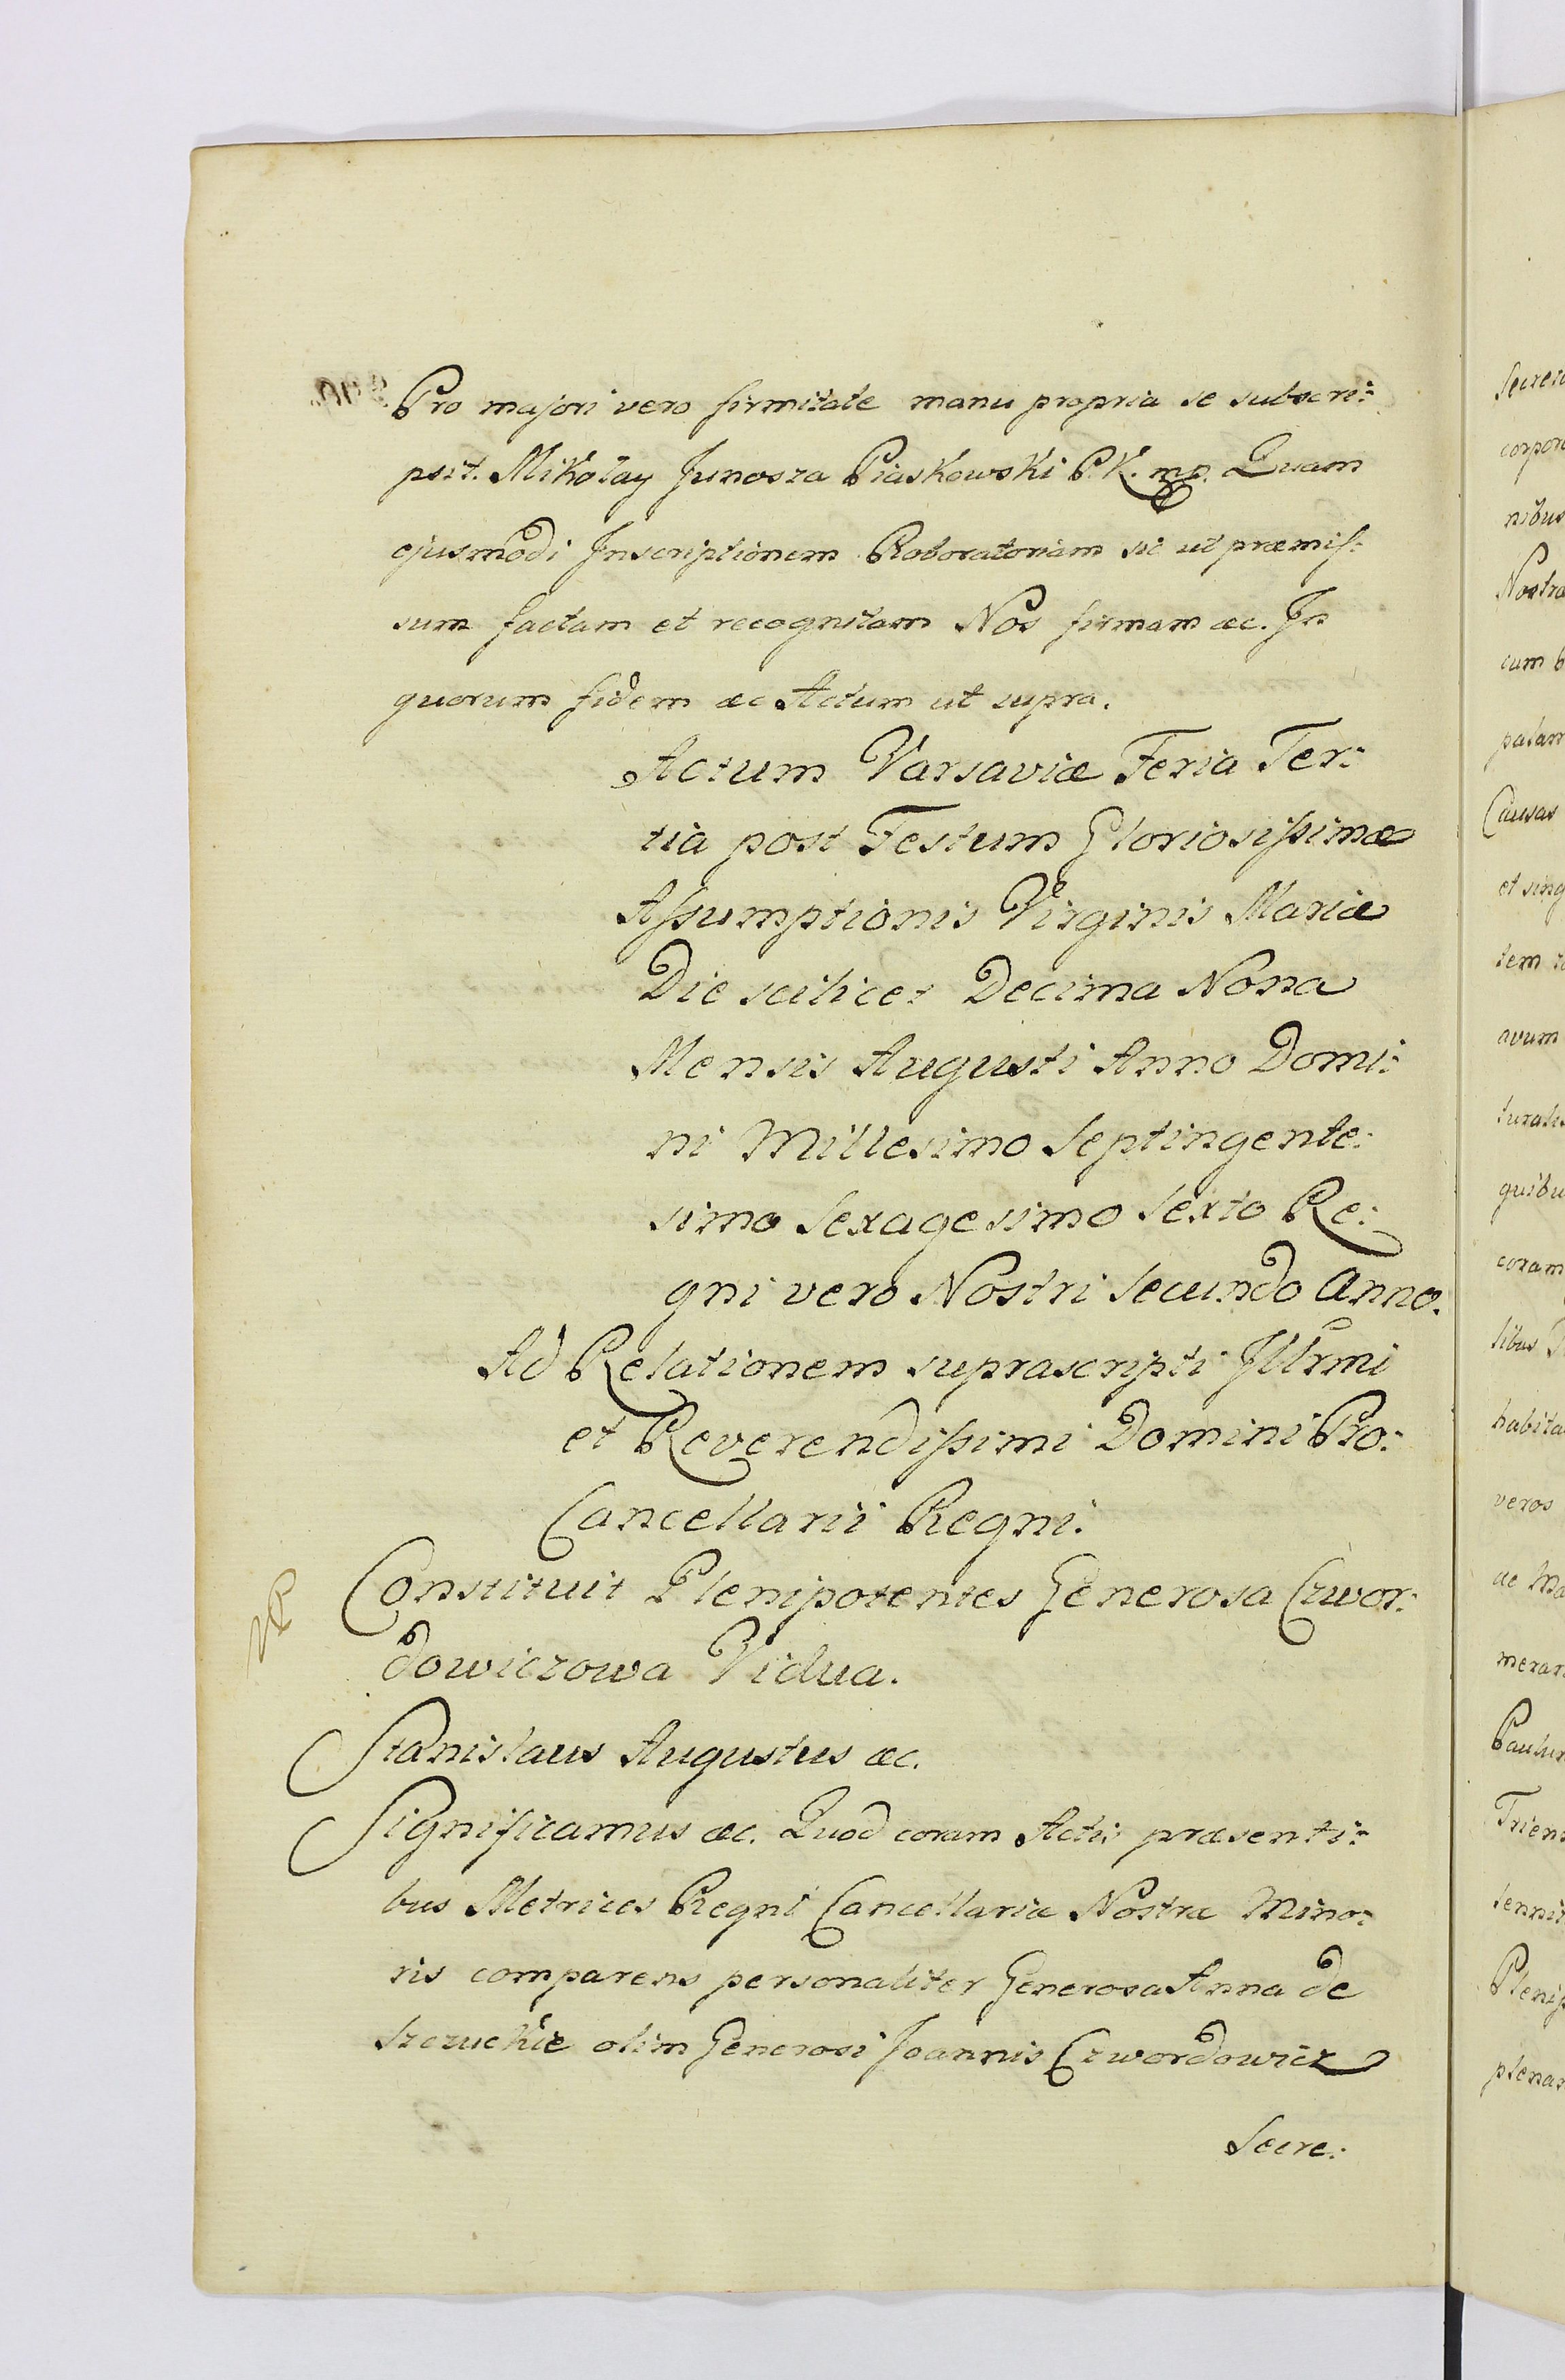 Pro majori vero firmitate manu propria se subscri:
psit. Mikołay Junosza Piaskowski P.K. mp. Quam
ejusmodi Inscriptionem Roboratoriam sic ut præmis:
sum factam et recognitam Nos firmam &c. In
quorum fidem &c Actum ut supra.
Actum Varsaviæ Feria Ter:
tia post Festum Gloriosissimæ
Assumptionis Virginis Mariæ
Die scilicet Decima Nona
Mensis Augusti Anno Domi:
ni Millesimo Septingente:
simo Sexagesimo Sexto Re:
gni vero Nostri Secundo Anno.
Ad Relationem suprascripti Illrmi
et Reverendissimi Domini Pro:
Cancellarii Regni.
Constituit Plenipotentes Generosa Czwor:
dowiczowa Vidua.
Stanislaus Augustus &c.
Significamus &c. Quod coram Actis præsenti:
bus Metrices Regni Cancellariæ Nostræ Mino:
ris comparens personaliter Generosa Anna de
olim Generosi Joannis Czwordowicz
Secre:
corpor
nibus
Nostra
cum
palam
Causas
et sing
tem
avum
turalis
quibu
coram
libus
habita
veros
ac
Trien
Plenip
plenar